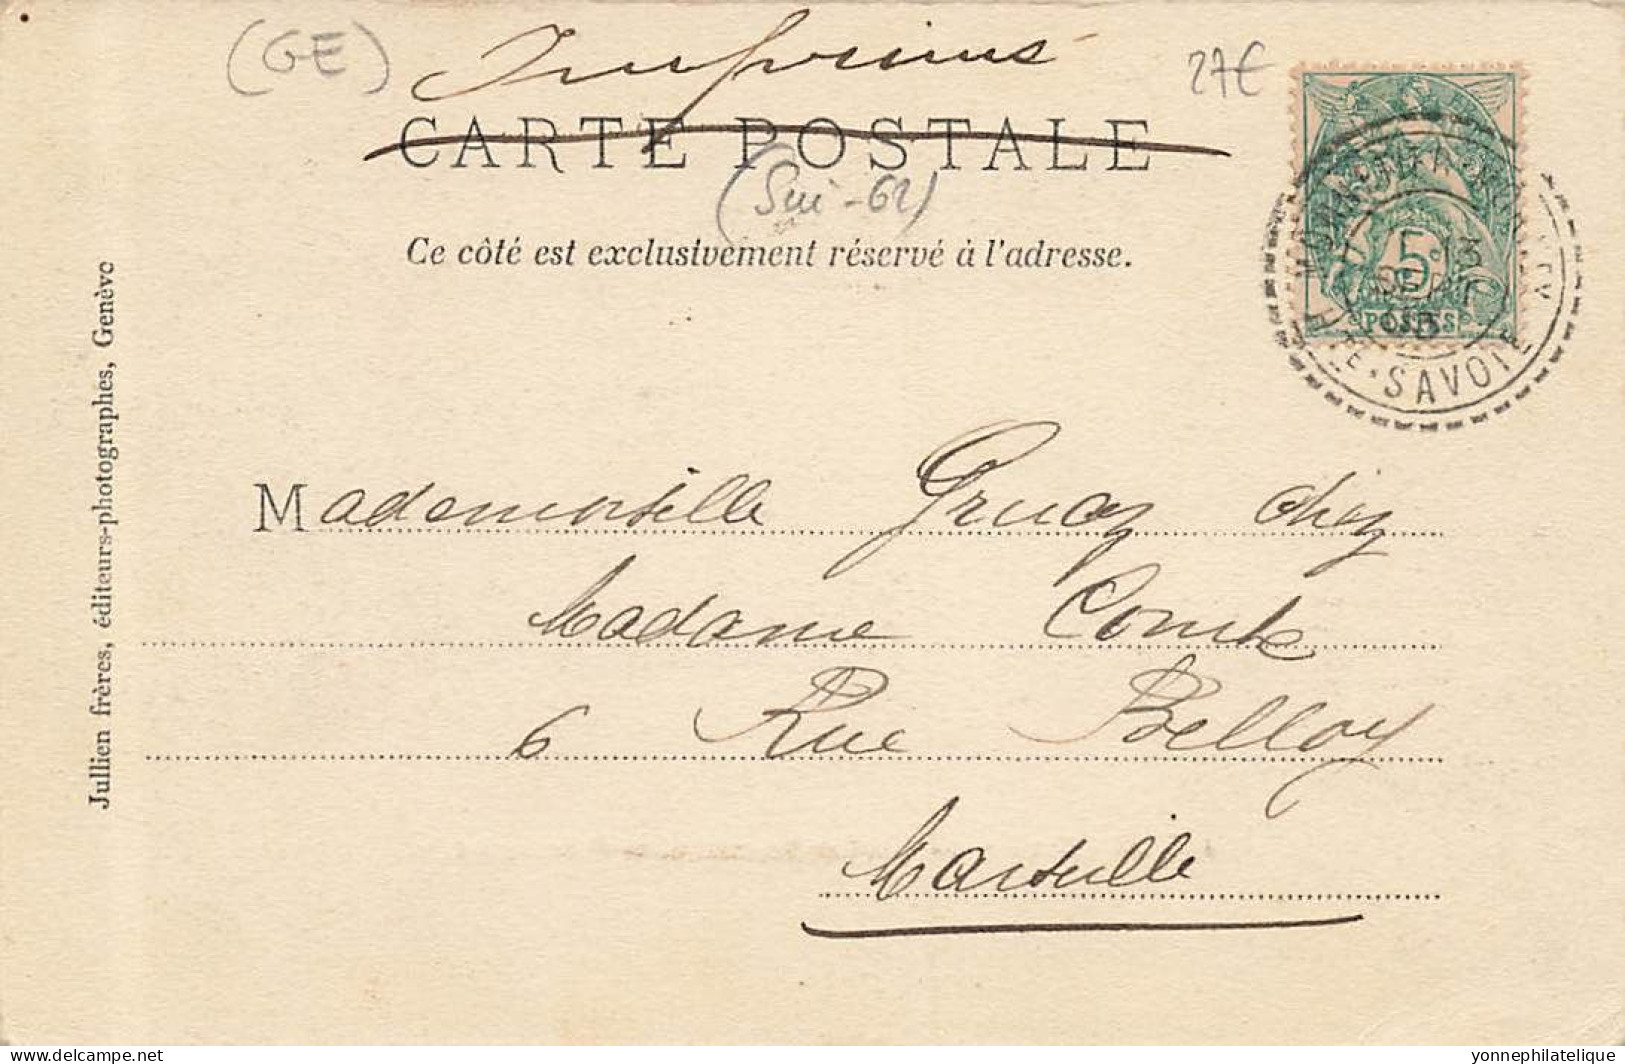 (GE)
Imprimés
27€
CARTE POSTALE
(Sui-62)
Ce côté est exclusivement réservé à l'adresse.
5
POSTES
13
SEPT
03
HTE-SAVOIE
Mademoiselle Gruaz chez
Madame Comte
6 Rue Belloy
Marseille
Jullien frères, éditeurs-photographes, Genève
delcampe.net
yonnephilatelie